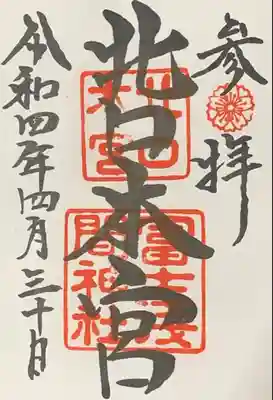 参拝
北口本宮
冨士浅間神社
令和四年四月三十日